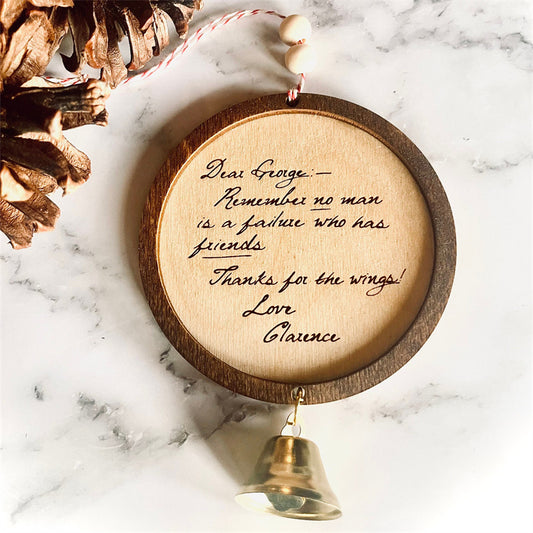 Dear George:—
Remember no man
is a failure who has
friends
Thanks for the wings!
Love
Clarence